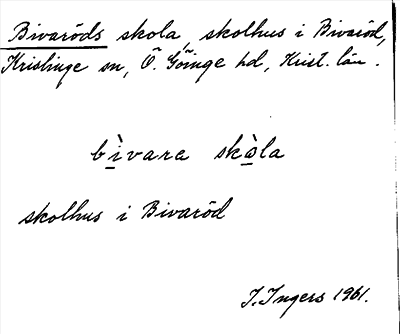 Bivaröds skola, skolhus i Bivaröd,
Kristinge sn, Ö. Göinge hd, Krist. län.
bìvara skòla
skolhus i Bivaröd
I. Ingers 1961.